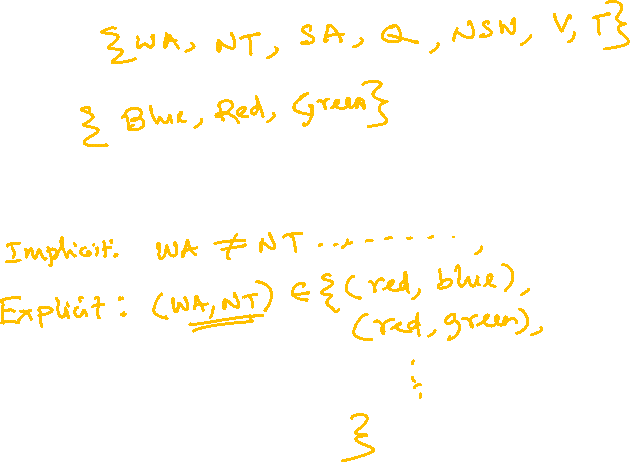 {WA, NT, SA, Q, NSW, V, T}
{Blue, Red, Green}
Implicit: WA ≠ NT ..........,
Explicit: (WA, NT) ∈ {(red, blue),
(red, green),
⋮
}